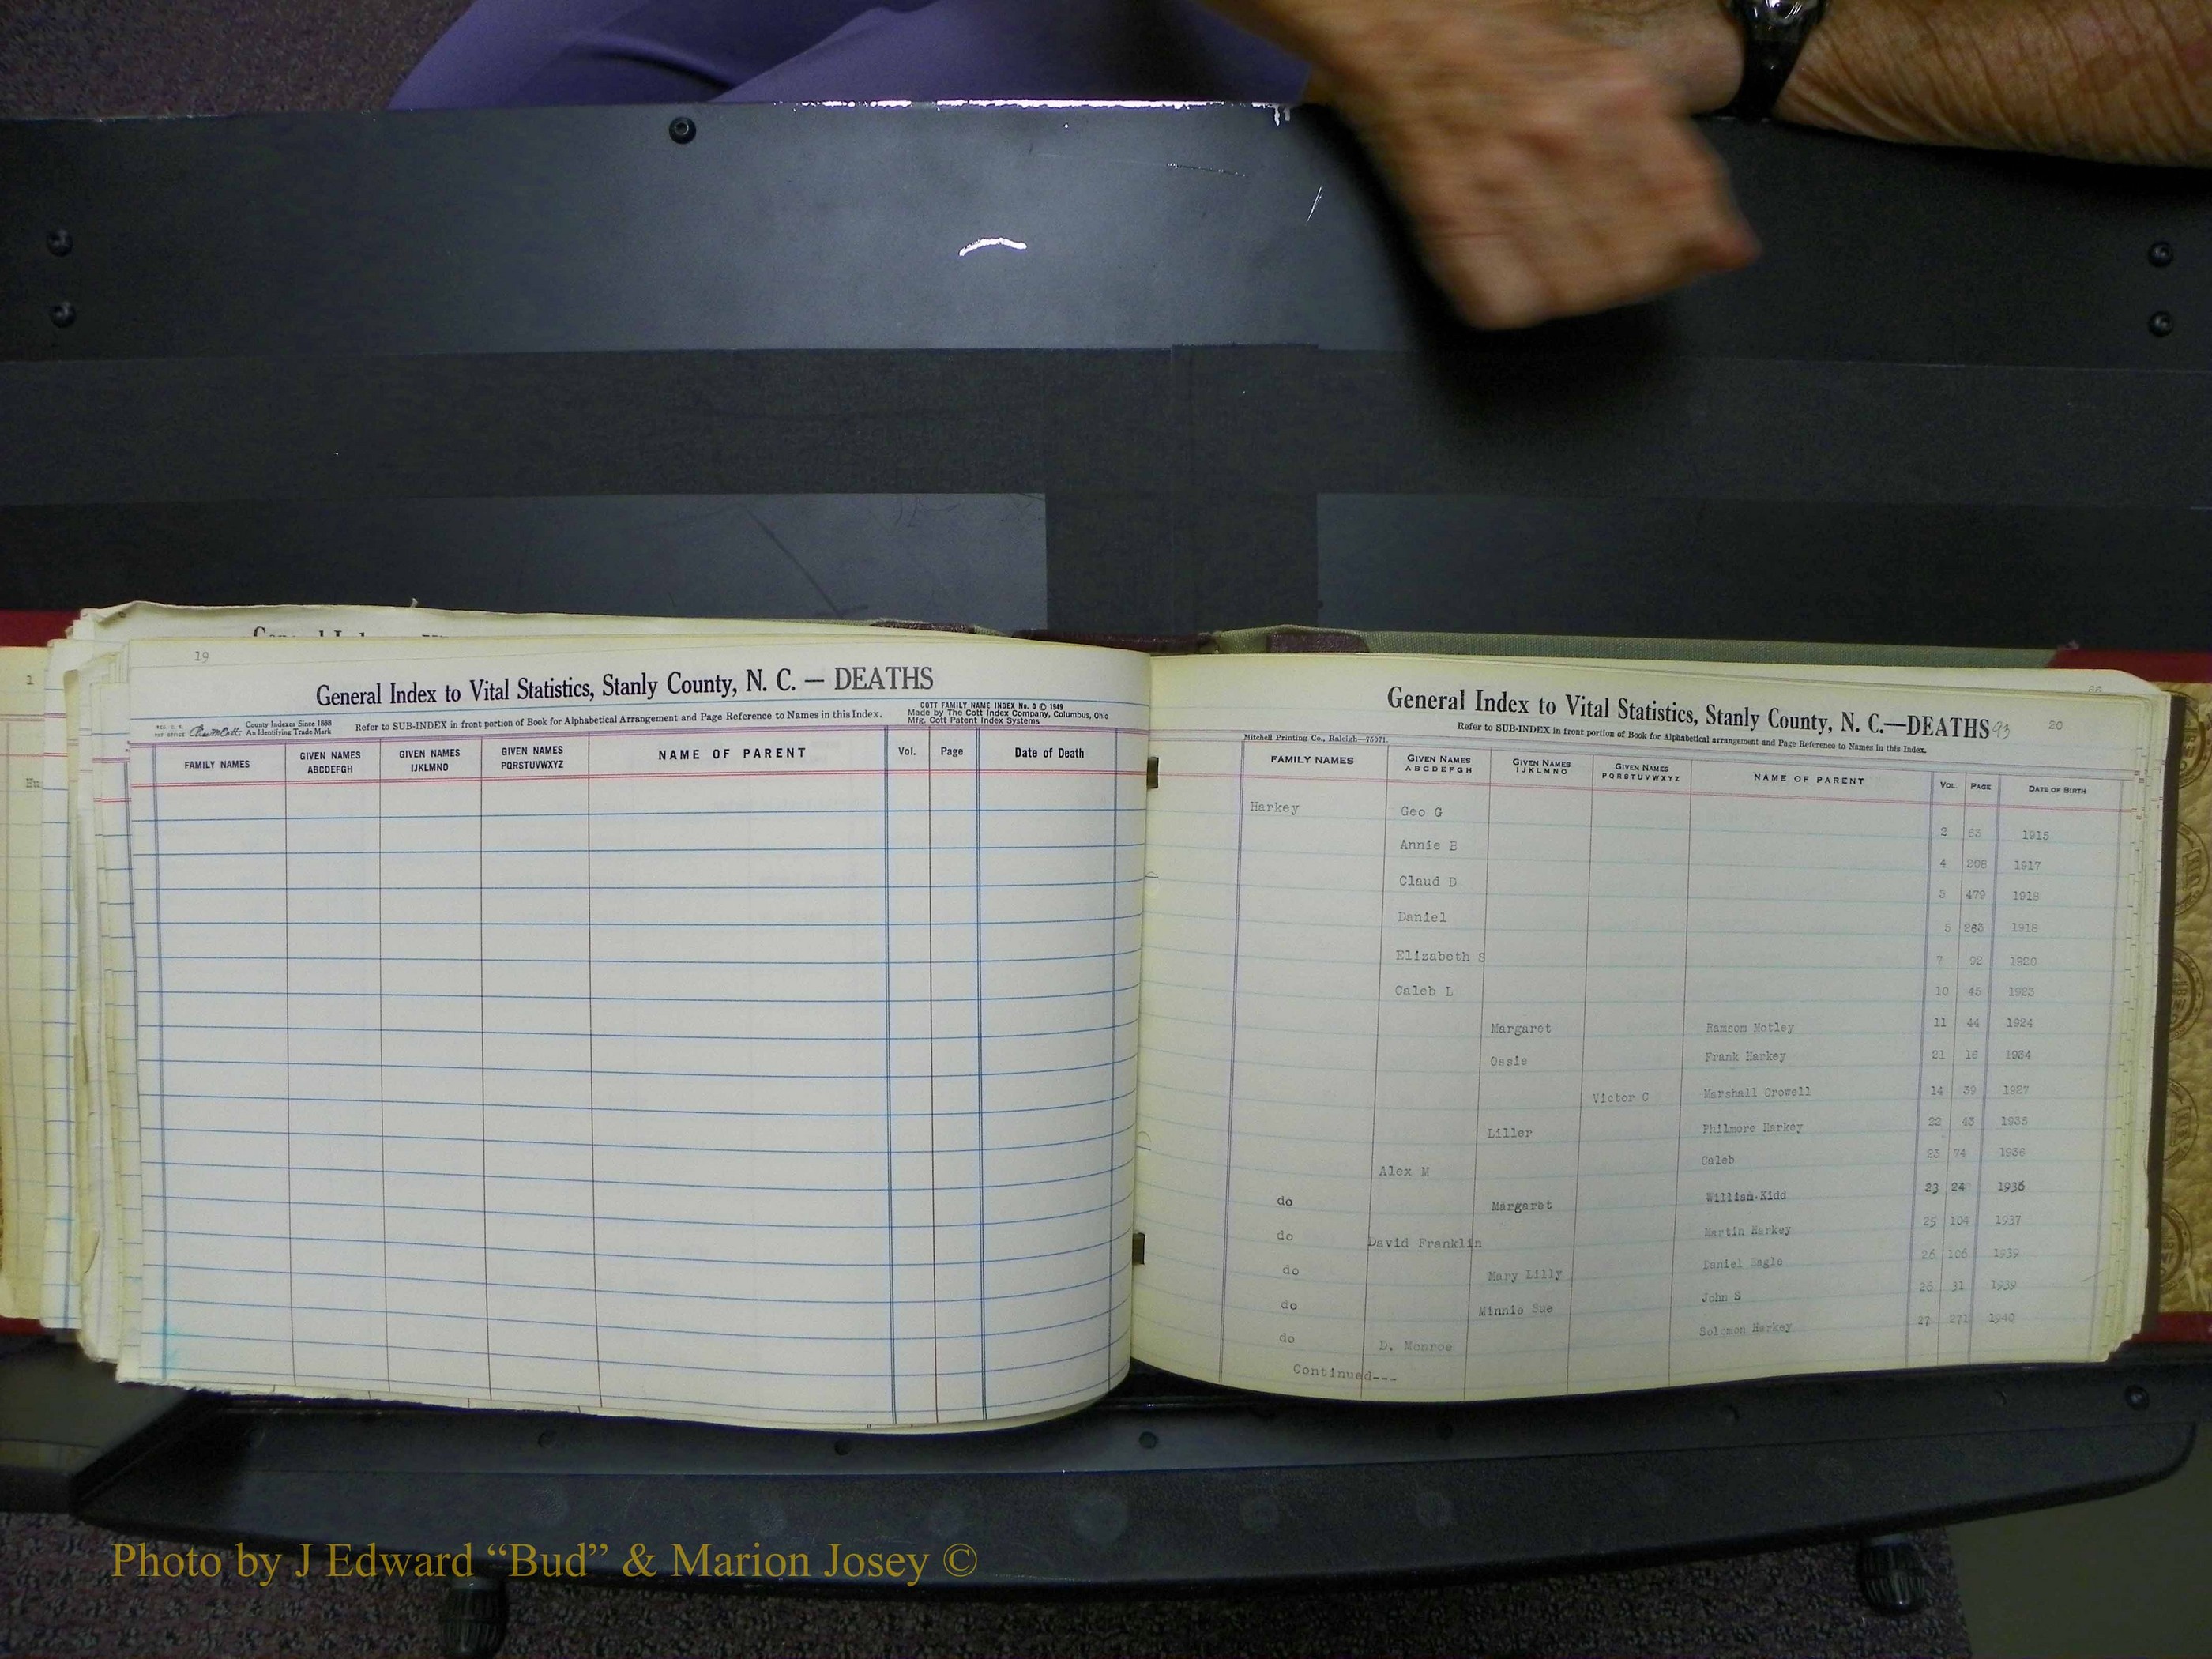 General Index
1
Hu
19
General Index to Vital Statistics, Stanly County, N. C. — DEATHS
County Indexes Since 1888
An Identifying Trade Mark
Refer to SUB-INDEX in front portion of Book for Alphabetical Arrangement and Page Reference to Names in this Index.
COTT FAMILY NAME INDEX No. 0 © 1949
Made by The Cott Index Company, Columbus, Ohio
Mfg. Cott Patent Index Systems
FAMILY NAMES GIVEN NAMES ABCDEFGH GIVEN NAMES IJKLMNO GIVEN NAMES PQRSTUVWXYZ NAME OF PARENT Vol. Page Date of Death
66
General Index to Vital Statistics, Stanly County, N. C.—DEATHS 93 20
Refer to SUB-INDEX in front portion of Book for Alphabetical arrangement and Page Reference to Names in this Index.
Mitchell Printing Co., Raleigh—75071
FAMILY NAMES GIVEN NAMES ABCDEFGH GIVEN NAMES IJKLMNO GIVEN NAMES PQRSTUVWXYZ NAME OF PARENT VOL. PAGE DATE OF BIRTH
Harkey Geo G 2 63 1915
Annie B 4 208 1917
Claud D 5 479 1918
Daniel 5 263 1918
Elizabeth S 7 92 1920
Caleb L 10 45 1923
Margaret Ramsom Notley 11 44 1924
Ossie Frank Harkey 21 16 1934
Victor C Marshall Crowell 14 39 1927
Liller Philmore Harkey 22 43 1935
Alex M Caleb 23 74 1936
do Margaret William Kidd 23 24 1936
do David Franklin Martin Harkey 25 104 1937
do Mary Lilly Daniel Eagle 26 106 1939
do Minnie Sue John S 26 31 1939
do D. Monroe Solomon Harkey 27 271 1940
Continued---
Photo by J Edward “Bud” & Marion Josey ©